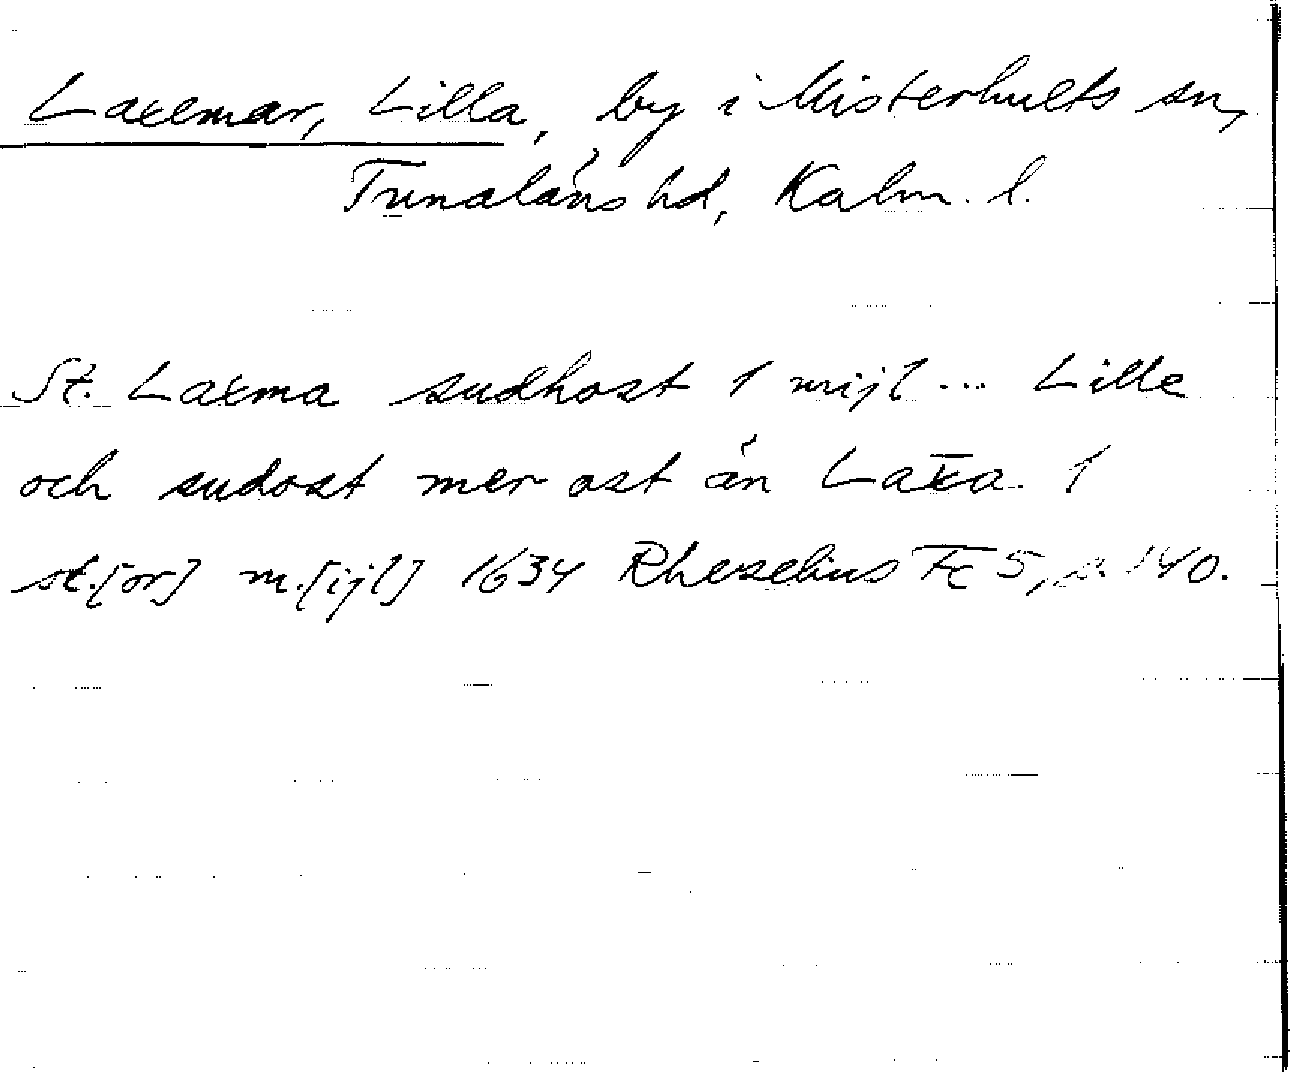 Laxemar, Lilla, by i Misterhults sn,
Tunaläns hd, Kalm. l.
St. Laxma sudhost 1 mijl ... Lille
och sudost mer ost än Laxa. 1
st.[or] m.[ijl] 1634 Rhezelius Fc 5, s. 140.